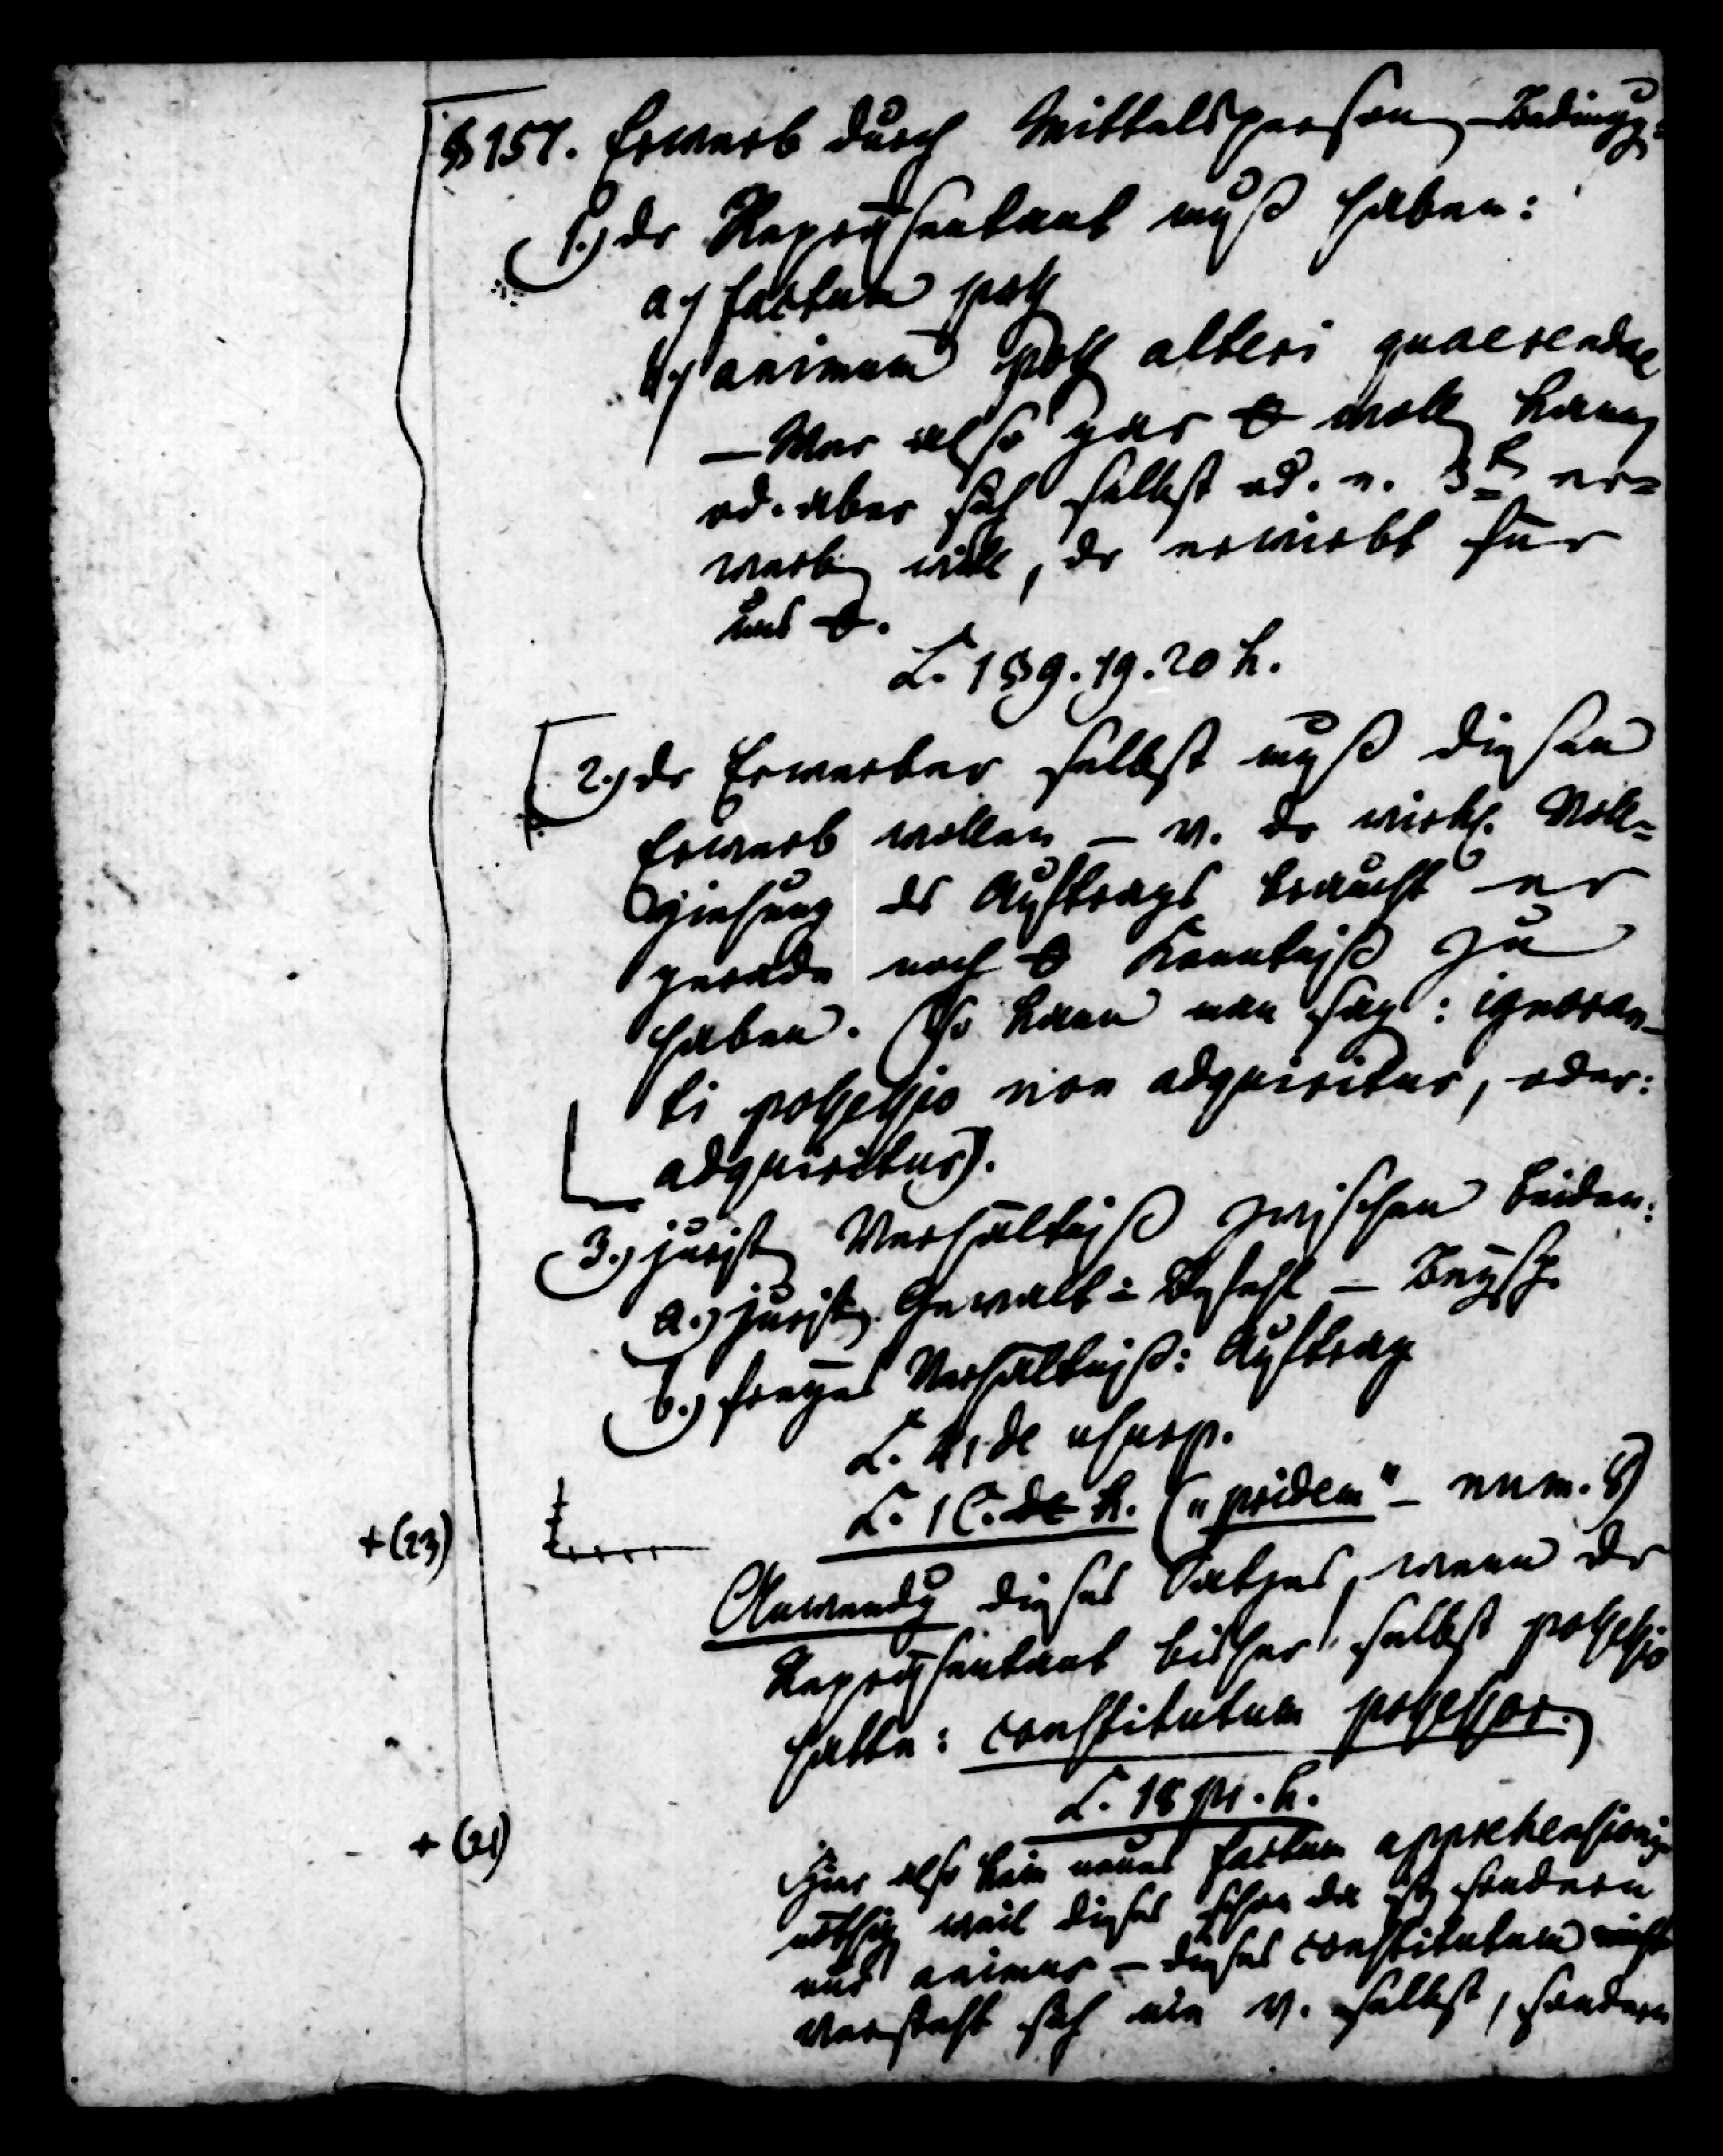 § 157. Erwerb durch Mittelsperson – Bedingg:
1.) dr Repräsentant muß haben:
a.) factum poss
b.) animum poss alteri quaerendae
– Wer also gar wolle kann
od. aber sich selbst od. e. 3t er=
werben will, dr erwirbt für
uns
L. 1 § 9. 19. 20 h.
2.) dr Erwerber selbst muß diesen
Erwerb wollen – v. dr wirkl. Voll=
ziehung ds Auftrags braucht er
gerade noch Kenntniß zu
haben. (So kann man sag: ignoran=
ti possessio non adquiritur, oder:
adquiritur).
3.) jurist Verhältniß zwischen beiden:
a.) jurist. Gewalt = Befehl – Beysp.
b.) freyes Verhältniß: Auftrag
L. 41 de usurp.
+ (23)
L. 1 C. de h. („pridem“ – num. 8)
Anwendg dieses Satzes, wenn dr
Repräsentant bisher selbst possessio
hatte: constitutum possessor.
L. 18 pr. h.
+ (21)
Hier also kein neues factum apprehensionis
nöthig weil dieses schon da ist, sondern
nur animus – dieses constitutum
versteht sich nie v. selbst, sondern